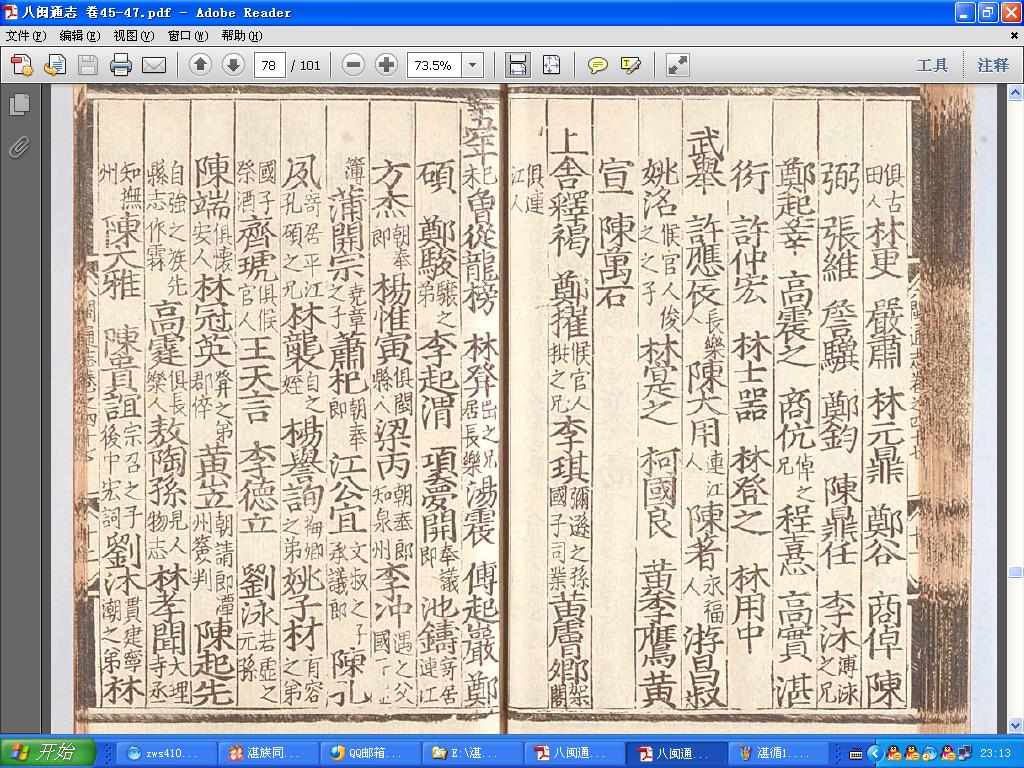 八闽通志 卷45-47.pdf - Adobe Reader
文件(F) 编辑(E) 视图(V) 窗口(W) 帮助(H)
78 / 101 73.5% 工具 注释
俱古田人 林更 嚴肅 林元鼎 鄭谷 商倬 陳
弼 張維 詹驥 鄭鈞 陳鼎任 李沐 溥泳之兄
鄭起莘 高震之 商伉 倬之兄 程憙 高實 湛
衍 許仲宏 林士器 林登之 林用中
武舉 許應 長樂人 陳大用 連江人 陳著 永福人 游昌叔
姚洺 候官人俊之之子 林㝎之 柯國良 黄季鷹 黄
宣 陳萬石
上舍釋褐 鄭㩁 候官人拱之兄 李琪 彌遜之孫國子司業 黄膚卿 架閣
俱連江人
五年己未曾從龍榜 林弅 出之兄居長樂 湯震 傅起嚴 鄭
碩 鄭駿 驤之弟 李起渭 項夢開 奉議郎 池鑄 寄居連江
方杰 朝奉郎 楊惟寅 俱閩縣人 梁丙 朝奉郎知泉州 李冲 遇之父國子正
簿 蒲開宗 堯章之子 蕭杞 朝奉郎 江公宜 文叔之子承議郎 陳孔
夙 寄居平江孔碩之兄 林襲 自之姪 楊譽詢 之弟 姚子材 有容之弟
國子祭酒 齊琥 俱候官人 王天言 李德立 劉泳 若虛之元孫
陳端 俱懷安人 林冠英 弅之弟郡倅 黄立 朝請郎潭州簽判 陳起先
自強之族先縣志作霖 高霆 俱長樂人 敖陶孫 見人物志 林孝聞 大理寺丞
知撫州 陳大雅 陳貴誼 宗召之子後中宏詞 劉沐 貫建寧潮之弟 林
开始 zws410... 湛族同... QQ邮箱... E:\湛... 八闽通... 八闽通... 湛循1... 23:13